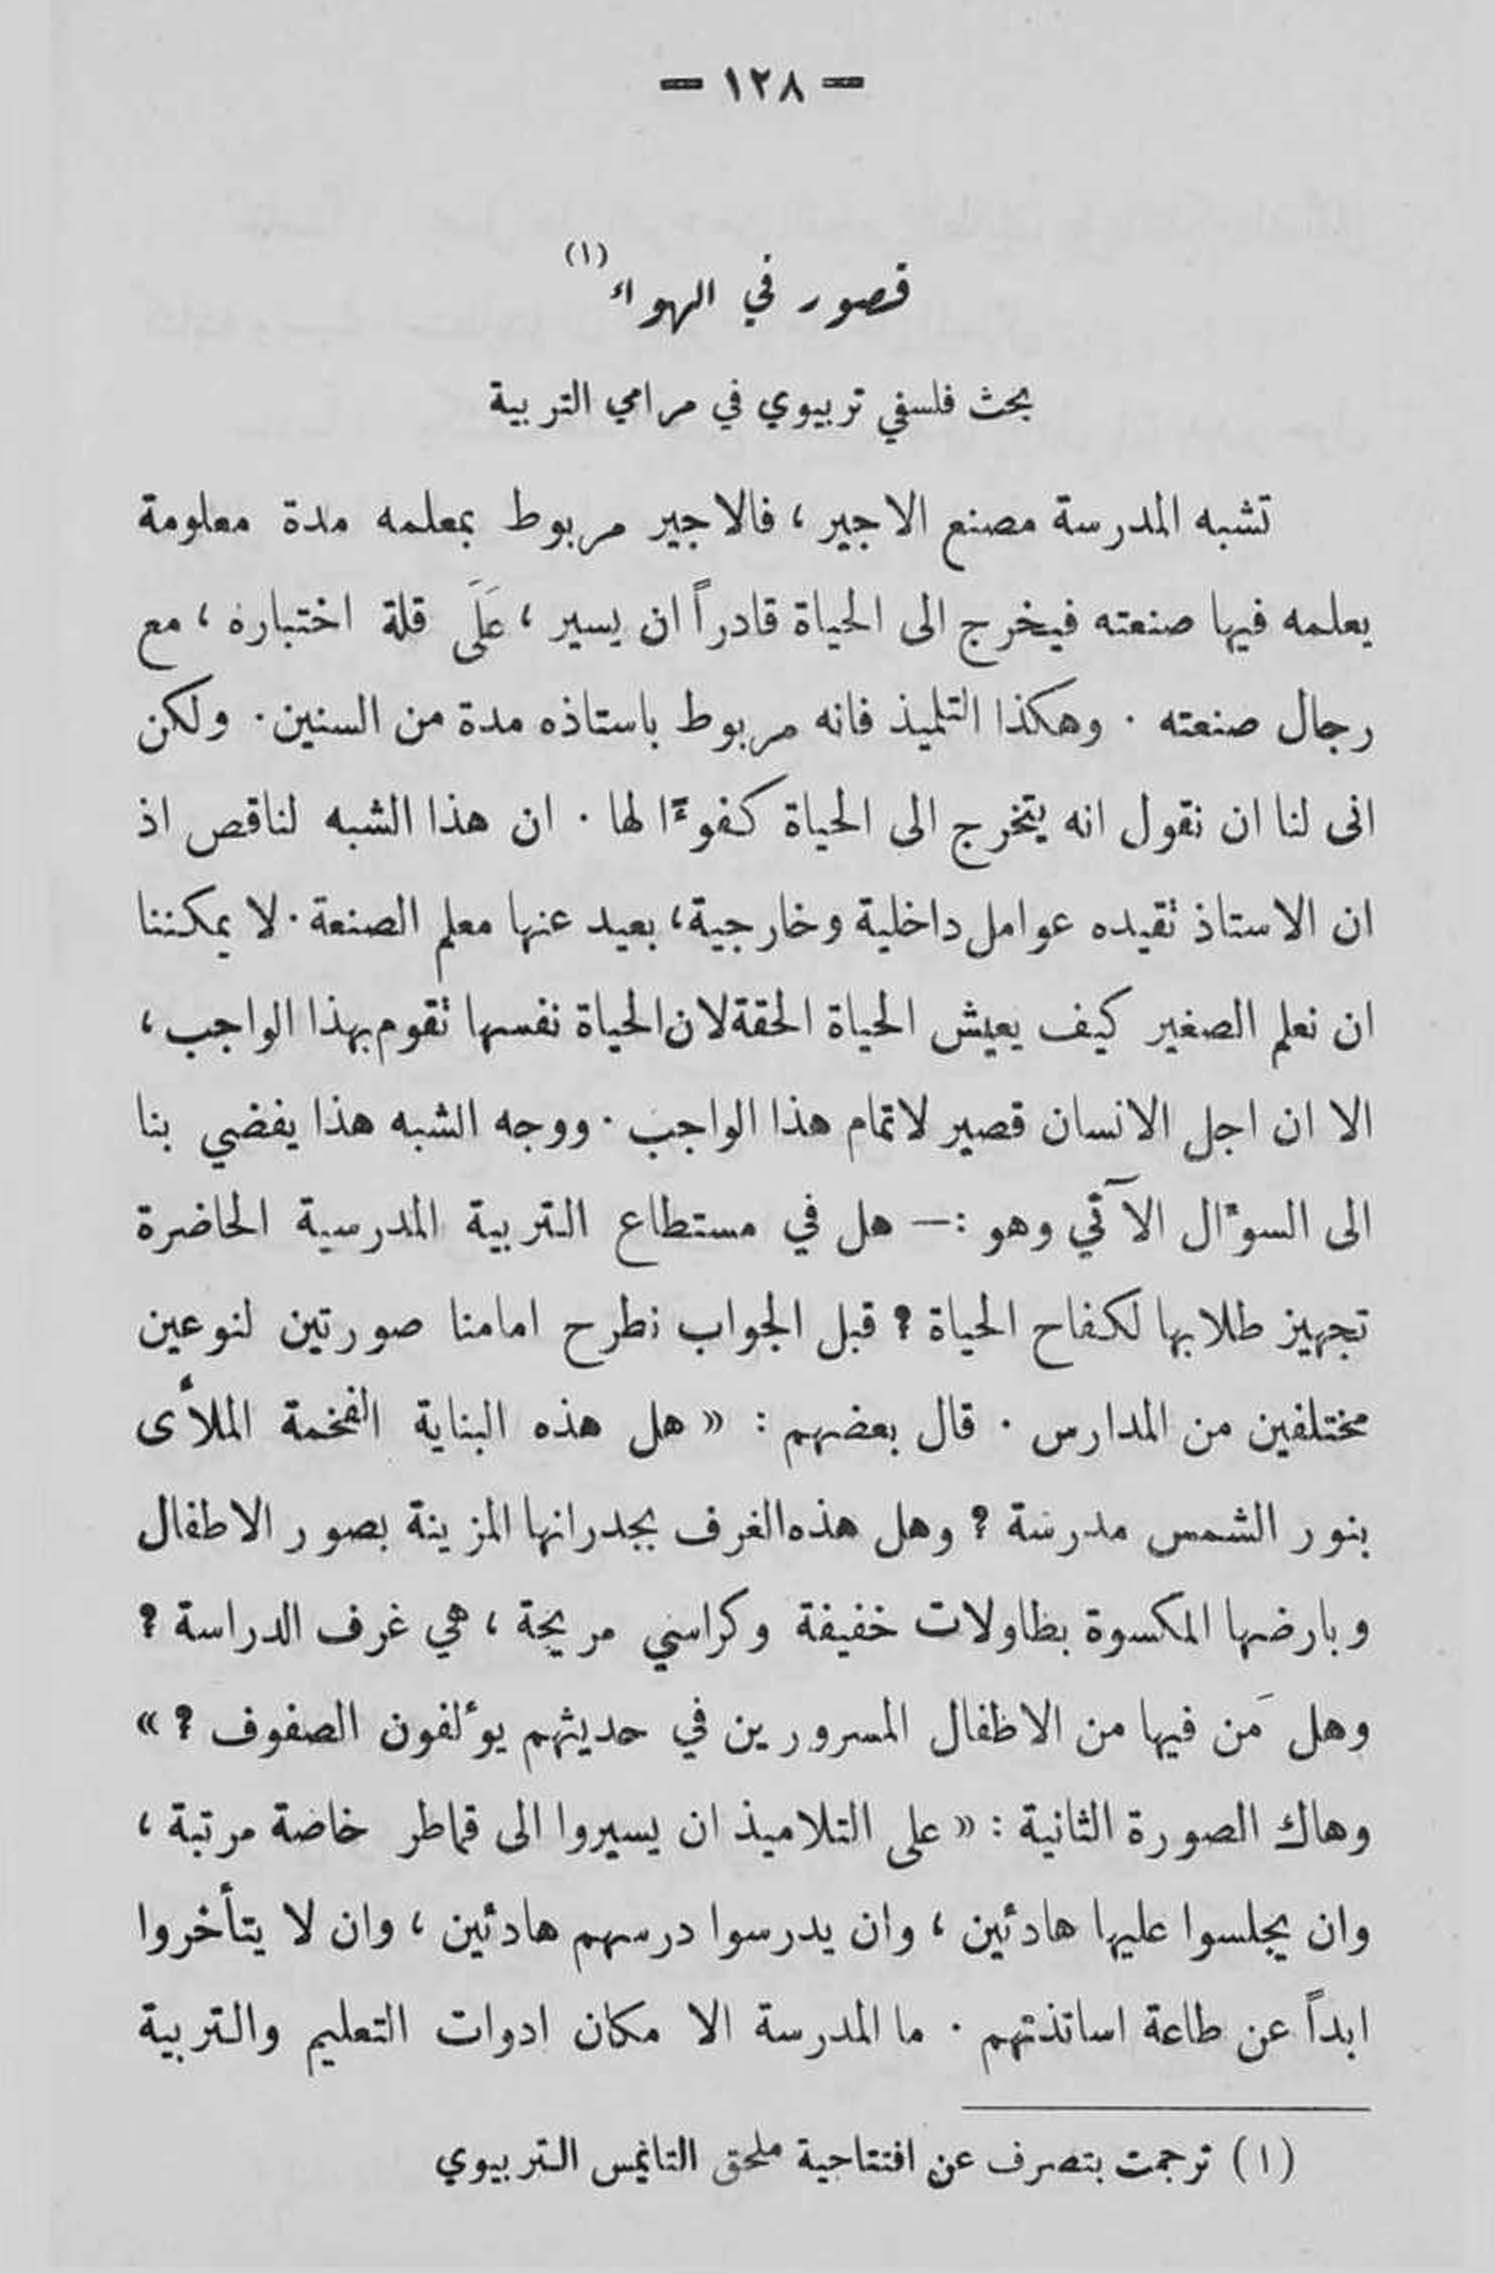 — ١٢٨ —
قصور في الهواء (١)
بحث فلسفي تربيوي في مرامي التربية
تشبه المدرسة مصنع الاجير ، فالاجير مربوط بمعلمه مدة معلومة
يعلمه فيها صنعته فيخرج الى الحياة قادراً ان يسير ، عَلَى قلة اختباره ، مع
رجال صنعته . وهكذا التلميذ فانه مربوط باستاذه مدة من السنين . ولكن
انى لنا ان نقول انه يتخرج الى الحياة كفوءًا لها . ان هذا الشبه لناقص اذ
ان الاستاذ تقيده عوامل داخلية وخارجية ، بعيد عنها معلم الصنعة . لا يمكننا
ان نعلم الصغير كيف يعيش الحياة الحقة لان الحياة نفسها تقوم بهذا الواجب ،
الا ان اجل الانسان قصير لاتمام هذا الواجب . ووجه الشبه هذا يفضي بنا
الى السوءال الآتي وهو :— هل في مستطاع التربية المدرسية الحاضرة
تجهيز طلابها لكفاح الحياة ؟ قبل الجواب نطرح امامنا صورتين لنوعين
مختلفين من المدارس . قال بعضهم : « هل هذه البناية الفخمة الملأى
بنور الشمس مدرسة ؟ وهل هذه الغرف بجدرانها المزينة بصور الاطفال
وبارضها المكسوة بطاولات خفيفة وكراسي مريحة ، هي غرف الدراسة ؟
وهل مَن فيها من الاطفال المسرورين في حديثهم يوءلفون الصفوف ؟ »
وهاك الصورة الثانية : « على التلاميذ ان يسيروا الى قماطر خاصة مرتبة ،
وان يجلسوا عليها هادئين ، وان يدرسوا درسهم هادئين ، وان لا يتأخروا
ابداً عن طاعة اساتذتهم . ما المدرسة الا مكان ادوات التعليم والتربية
(١) ترجمت بتصرف عن افتتاحية ملحق التايمس التربيوي